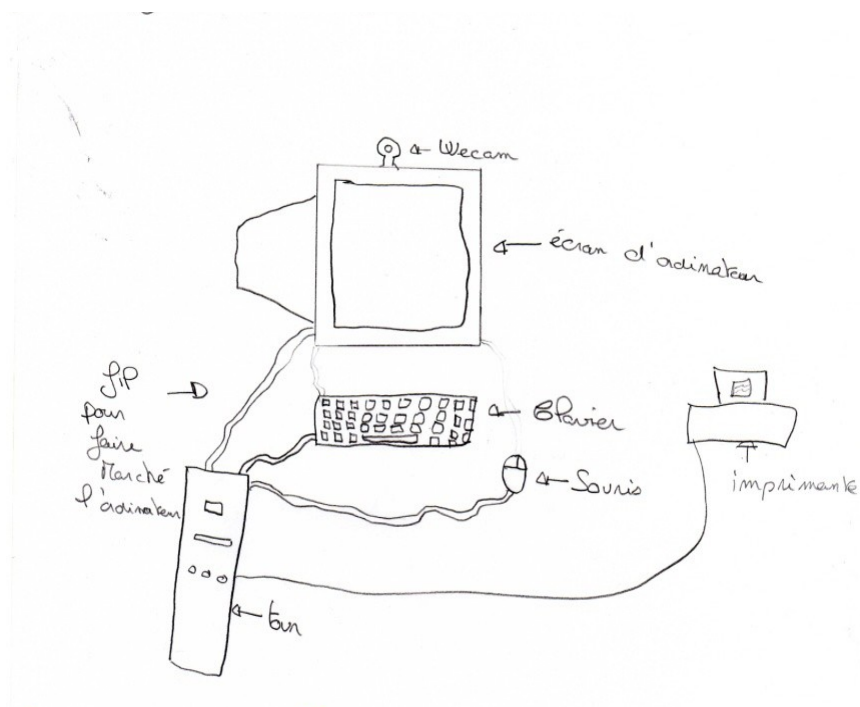 Wecam
écran d'ordinateur
fiP
pour
faire
Marché
l'ordinateur
Clavier
Souris
imprimante
tour